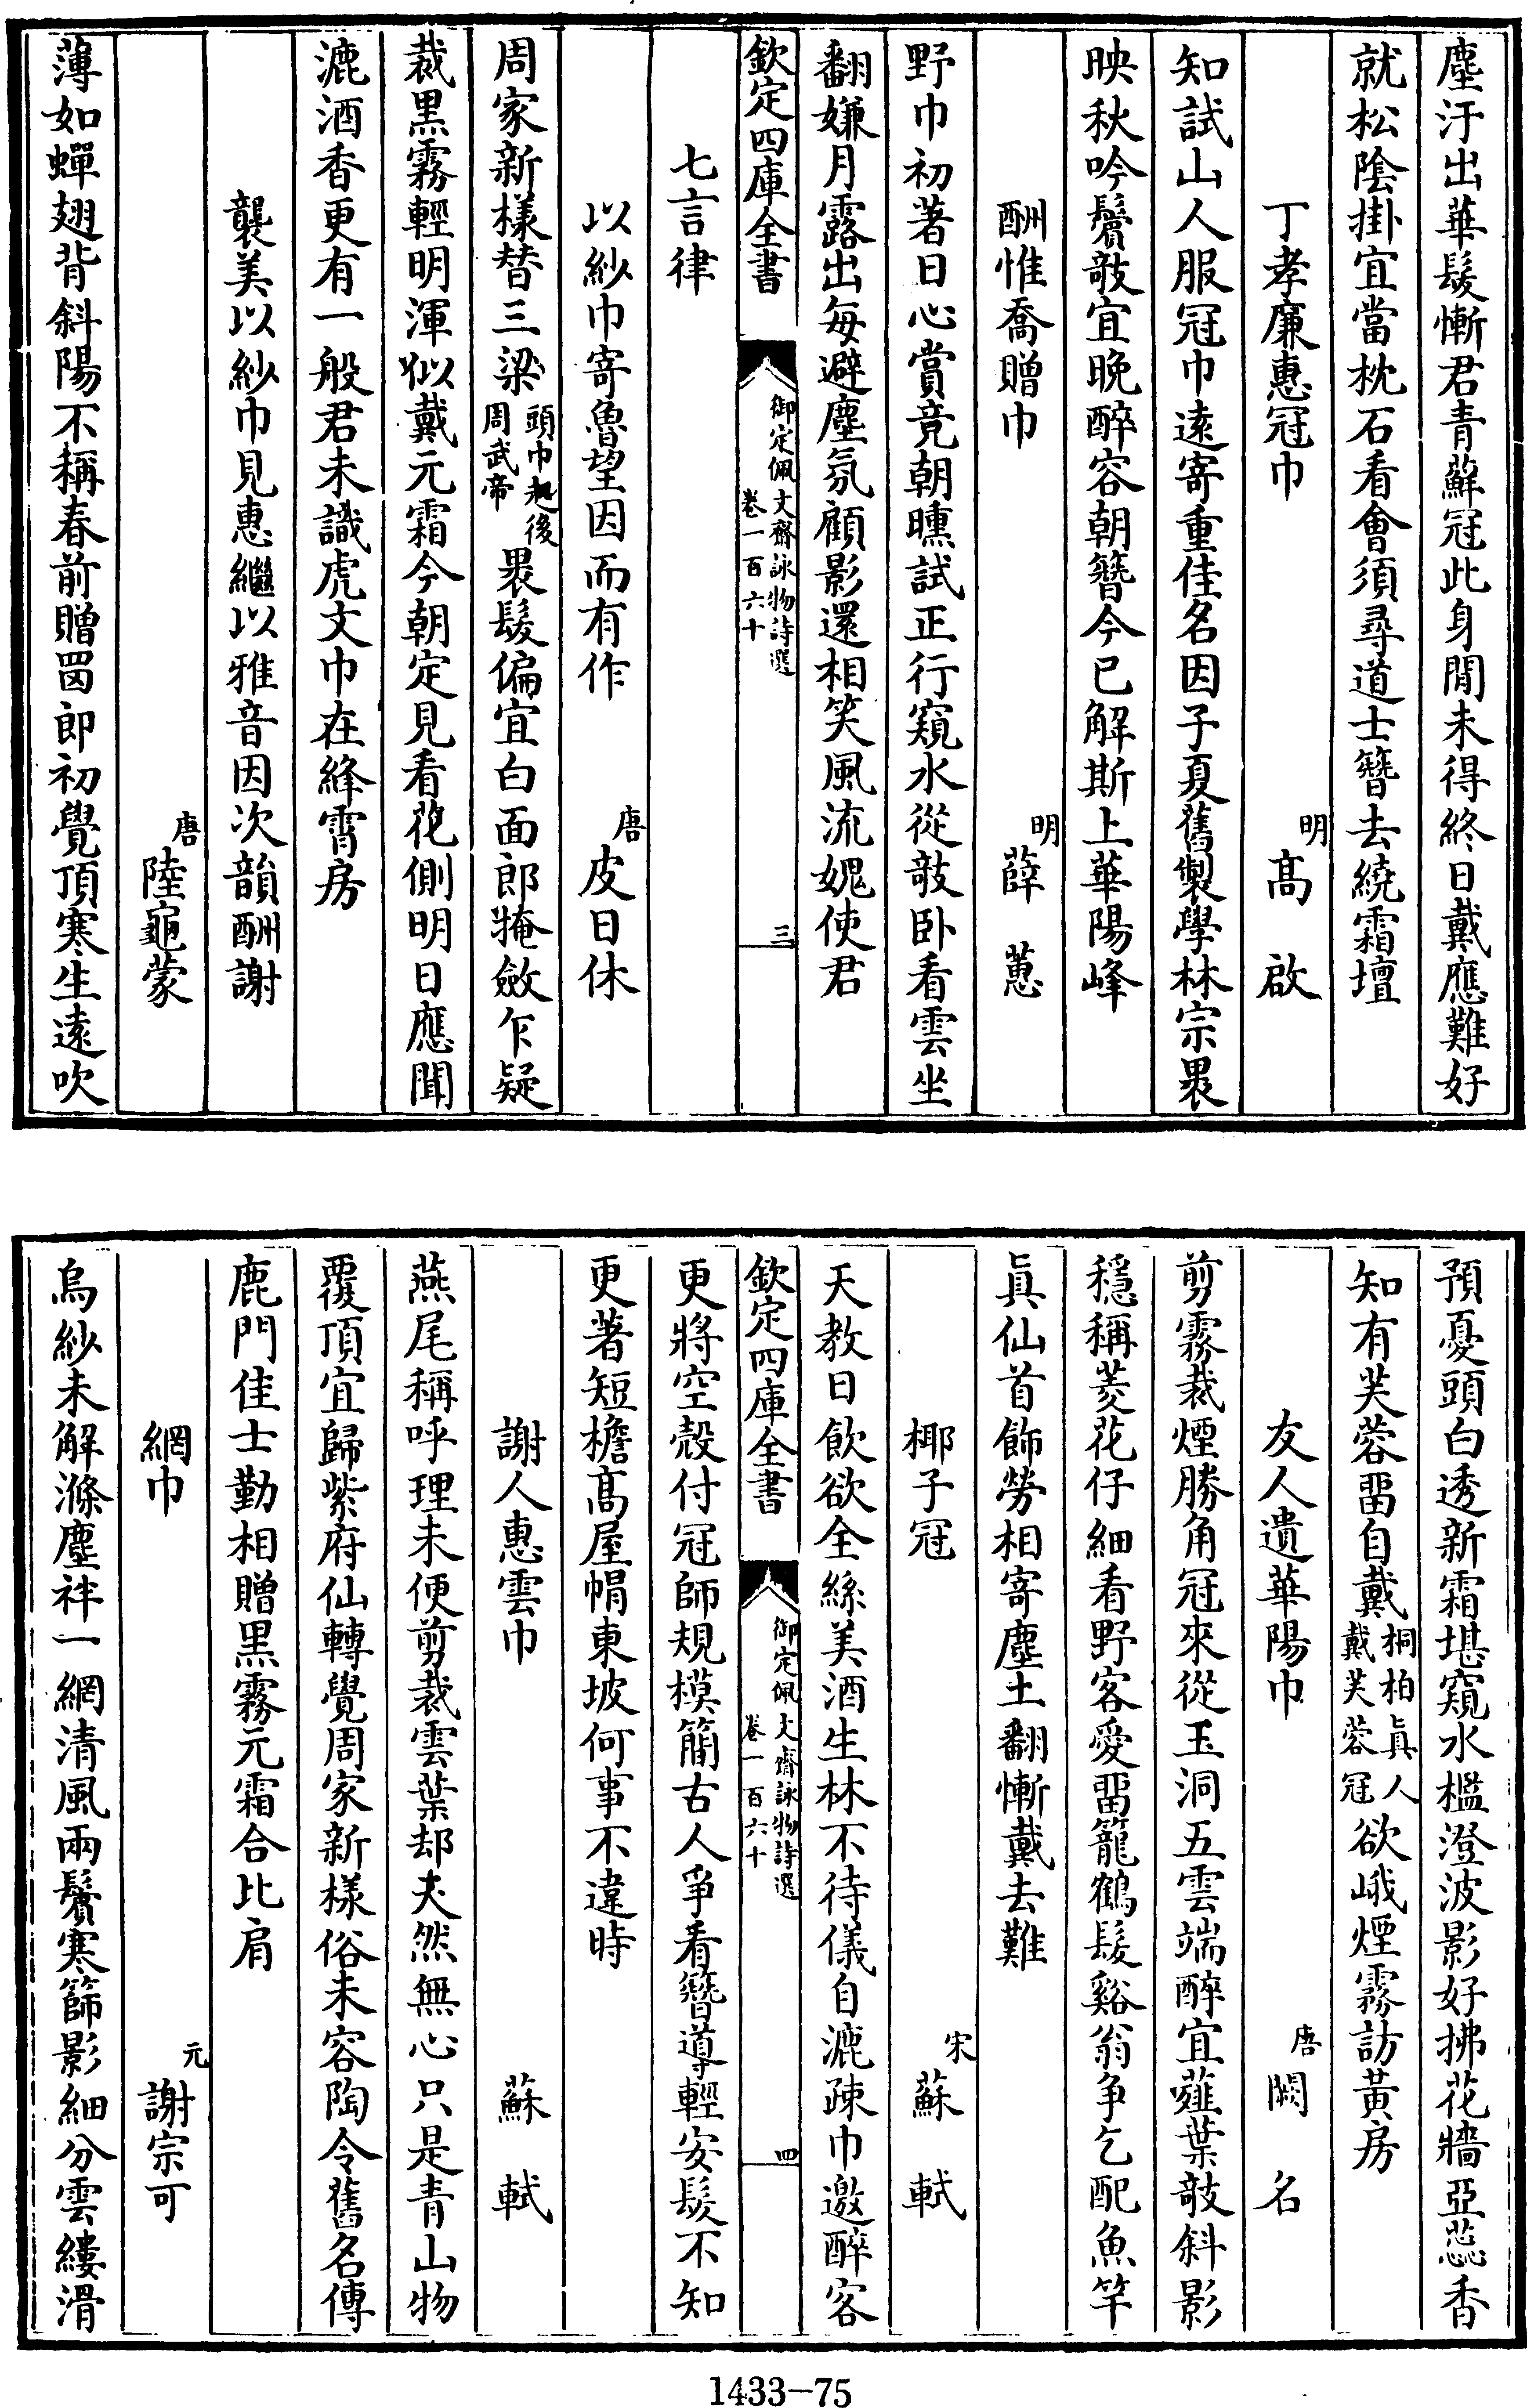 塵汙出華髮慚君青蘚冠此身閒未得終日戴應難好
就松陰掛宜當枕石看會須尋道士簪去繞霜壇
丁孝廉惠冠巾 明 高啟
知試山人服冠巾遠寄重佳名因子夏舊製學林宗褁
映秋吟鬢攲宜晚醉容朝簪今已解斯上華陽峰
酬惟喬贈巾 明 薛蕙
野巾初著日心賞竟朝曛試正行窺水從攲卧看雲坐
翻嫌月露出每避塵氛顧影還相笑風流媿使君
欽定四庫全書 御定佩文齋詠物詩選 卷一百六十 三
七言律
以紗巾寄魯望因而有作 唐 皮日休
周家新樣替三梁 頭巾起後周武帝 褁髮偏宜白面郎掩斂乍疑
裁黒霧輕明渾似戴元霜今朝定見看花側明日應聞
漉酒香更有一般君未識虎文巾在絳霄房
襲美以紗巾見惠繼以雅音因次韻酬謝
唐 陸龜蒙
薄如蟬翅背斜陽不稱春前贈罔郎初覺頂寒生遠吹
預憂頭白透新霜堪窺水檻澄波影好拂花牆亞蕊香
知有芙蓉畱自戴 桐柏真人戴芙蓉冠 欲峨煙霧訪黃房
友人遺華陽巾 唐 闕名
剪霧裁煙勝角冠來從玉洞五雲端醉宜薤葉攲斜影
穩稱菱花仔細看野客愛畱籠鶴髮谿翁争乞配魚竿
眞仙首飾勞相寄塵土翻慚戴去難
椰子冠 宋 蘇軾
天教日飲欲全絲美酒生林不待儀自漉疎巾邀醉客
欽定四庫全書 御定佩文齋詠物詩選 卷一百六十 四
更將空殼付冠師規模簡古人爭看簪導輕安髮不知
更著短檐高屋帽東坡何事不違時
謝人惠雲巾 蘇軾
燕尾稱呼理未便剪裁雲葉却天然無心只是青山物
覆頂宜歸紫府仙轉覺周家新樣俗未容陶令舊名傳
鹿門佳士勤相贈黒霧元霜合比肩
網巾 元 謝宗可
烏紗未解滌塵袢一網清風兩鬢寒篩影細分雲縷滑
1433-75